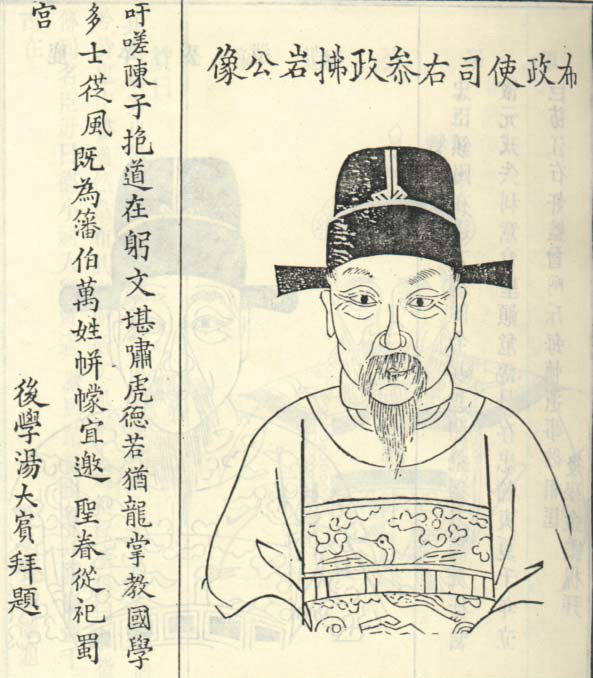 布政使司右叅政拂岩公像
吁嗟陳子抱道在躬文堪嘯虎徳若猶龍掌教國學
多士從風既為籓伯萬姓帡幪宜邀聖眷從祀蜀
宮
後學湯大賓拜題